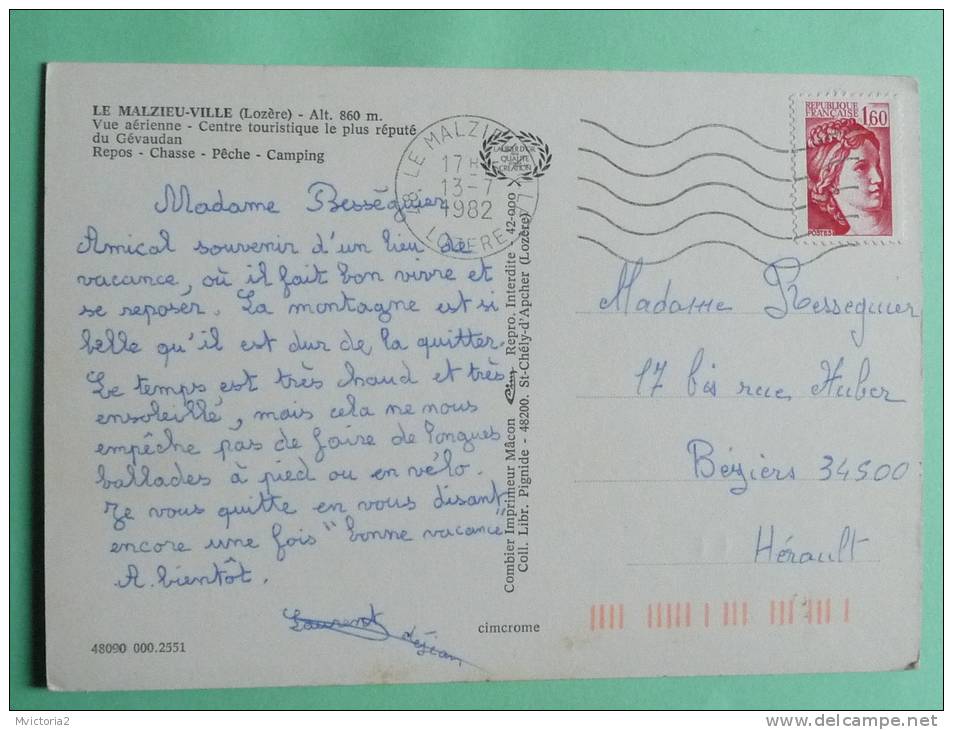 LE MALZIEU-VILLE (Lozère) - Alt. 860 m.
Vue aérienne - Centre touristique le plus réputé
du Gévaudan
Repos - Chasse - Pêche - Camping
Madame Bességuier
Amical souvenir d'un lieu de
vacance, où il fait bon vivre et
se reposer. La montagne est si
belle qu'il est dur de la quitter.
Le temps est très chaud et très
ensoleillé, mais cela ne nous
empêche pas de faire de longues
ballades à pied ou en vélo.
Je vous quitte en vous disant
encore une fois "bonne vacance"
A bientôt.
Laurent déjean
48090 000.2551
cimcrome
Combier Imprimeur Mâcon Cim Repro. Interdite 42-000
Coll. Libr. Pignide - 48200. St-Chély-d'Apcher (Lozère)
48 LE MALZIEU
17H
13-7
1982
LOZERE
QUALITE
CREATION
REPUBLIQUE
FRANÇAISE
1,60
POSTES
Madame Resseguier
17 bis rue Huber
Béziers 34500
Hérault
Mvictoria2
www.delcampe.net